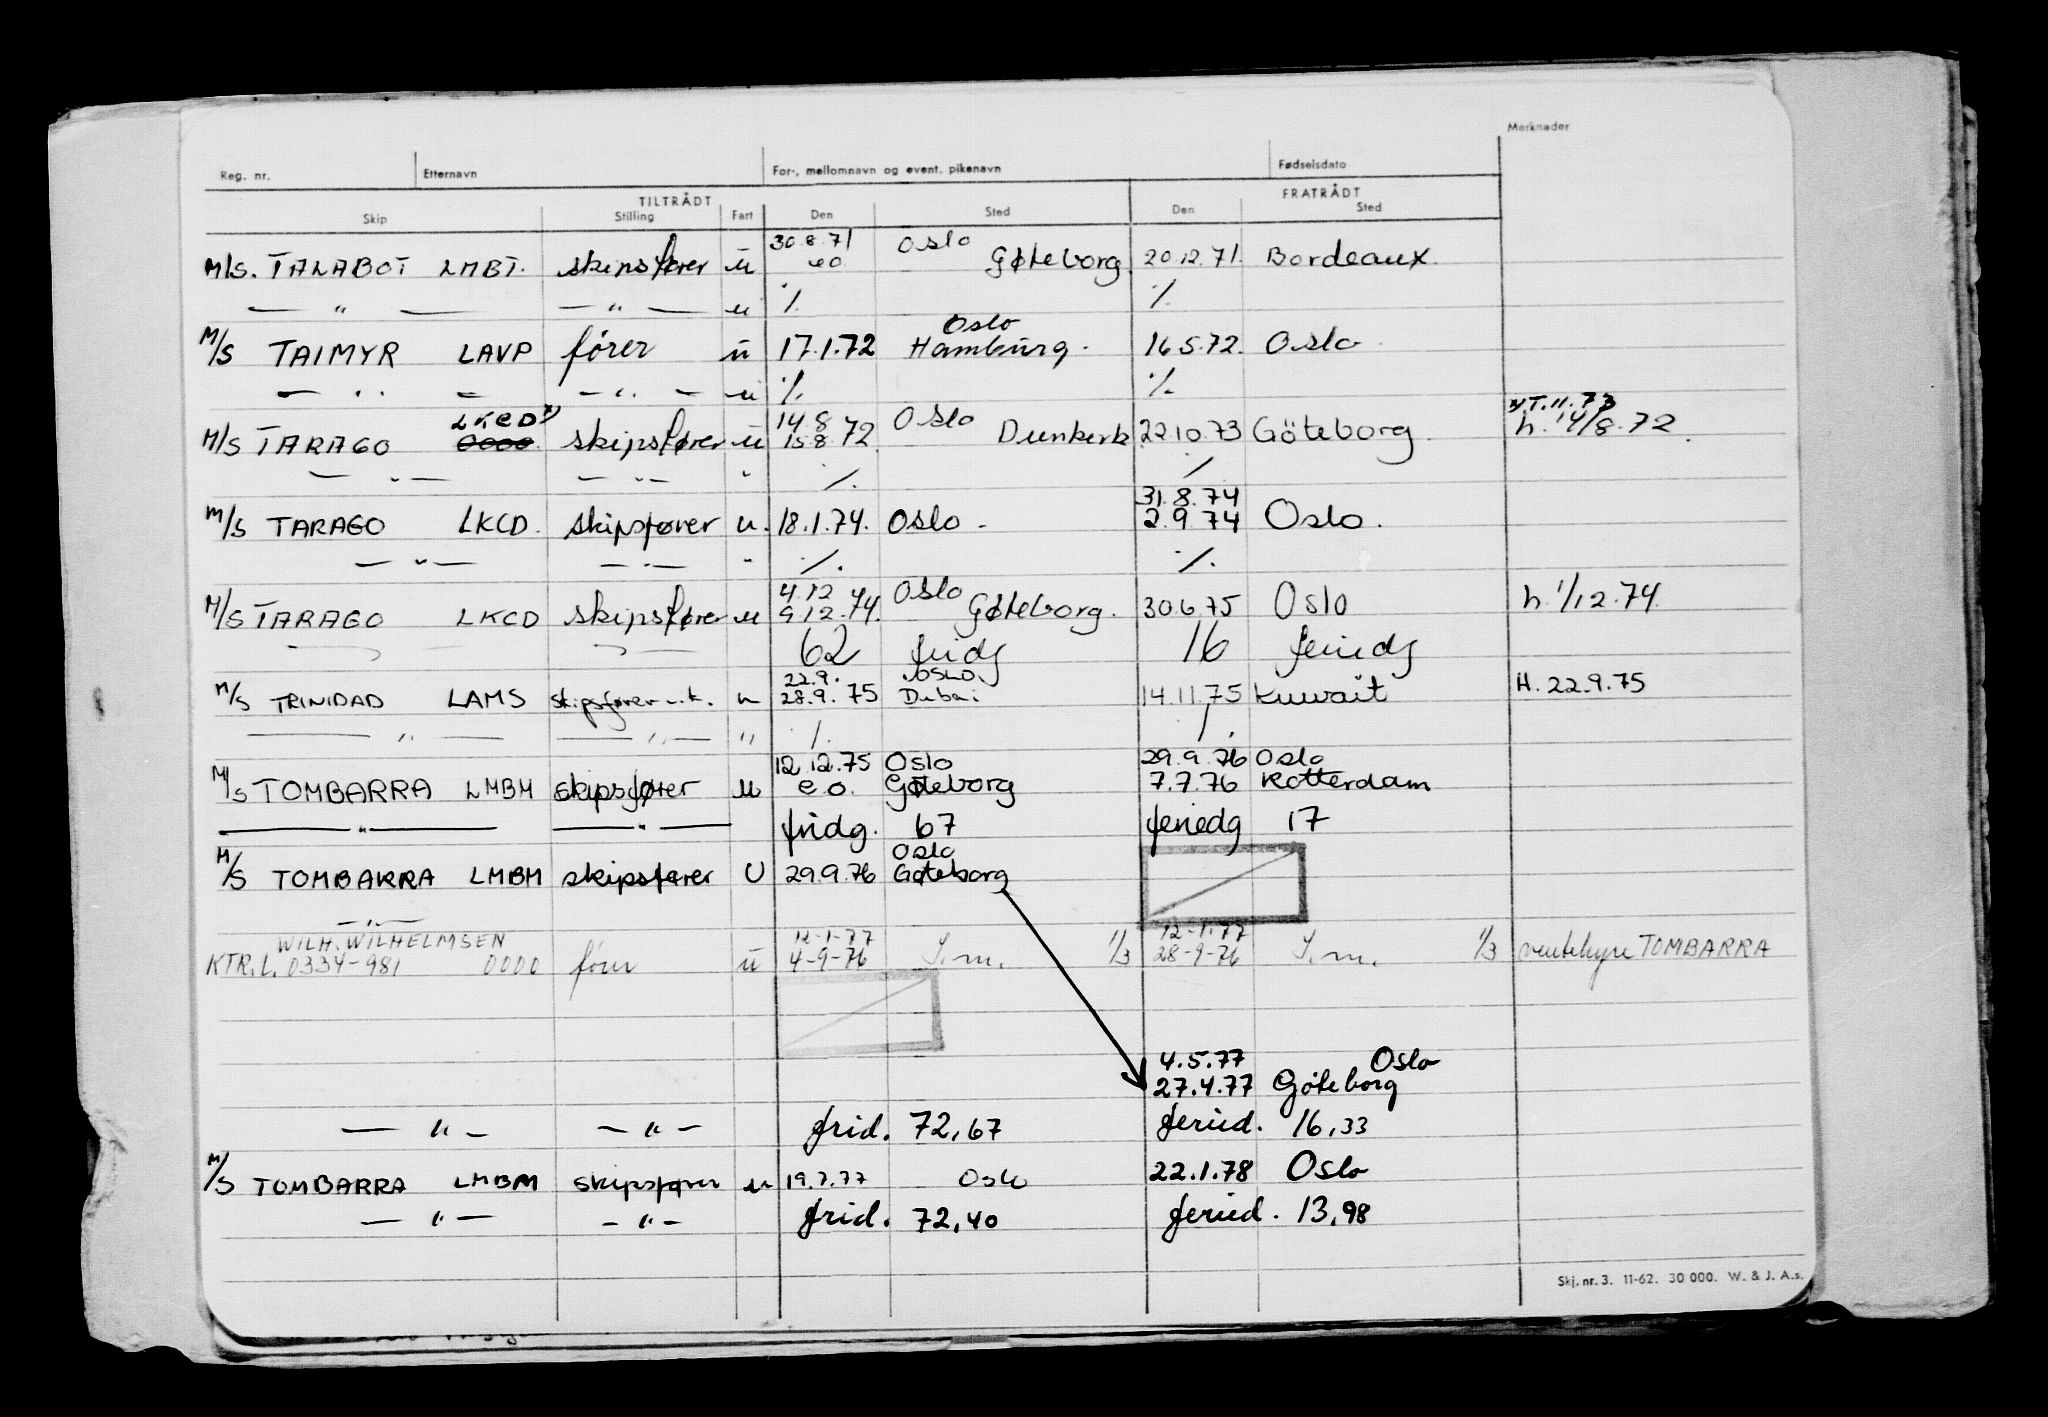 Merknader
Reg. nr. Etternavn For-, mellomnavn og event. pikenavn Fødselsdato
TILTRÅDT FRATRÅDT
Skip Stilling Fart Den Sted Den Sted
30.8.71 Oslo
M/S. TALABOT LMBT. skipsfører u eo Gøteborg. 20.12.71. Bordeaux.
— " — — " — u ·/. ·/.
Oslo
M/S TAIMYR LAVP fører u 17.1.72 Hamburg. 16.5.72. Oslo.
— " — — " — u ·/. ·/.
LKCD 14.8 Oslo 7.11.73
M/S TARAGO 0000 skipsfører u 15.8.72. Dunkerk 22.10.73 Göteborg. h. 14/8.72.
— " — — " — " ·/. ·/.
31.8.74
M/S TARAGO LKCD. skipsfører u. 18.1.74. Oslo - 2.9.74 Oslo.
— " — — " — " ·/. ·/.
4.12 Oslo
M/S TARAGO LKCD skipsfører u 9.12.74. Gøteborg. 30.6.75 Oslo h. 1/12.74.
62 fridg 16 feriedg
22.9. OSLO.
M/S TRINIDAD LAMS skipsfører u.k. u 28.9.75 Dubai 14.11.75 Kuwait H. 22.9.75
— " — — " — " ·/. ·/.
12.12.75 Oslo 29.9.76 Oslo
M/S TOMBARRA LMBM skipsfører u e.o. Gøteborg 7.7.76 Rotterdam
— " — — " — fridg. 67 feriedg 17
Oslo
M/S TOMBARRA LMBM skipsfører U 29.9.76 Gøteborg
— " —
WILH. WILHELMSEN 12-1-77 12-1-77
KTR.L. 0334-981 0000 fører u 4-9-76 S.m. 1/3 28-9-76 S.m. 1/3 ventehyre TOMBARRA
4.5.77 Oslo
27.4.77 Göteborg
— " — — " — frid. 72,67 feried. 16,33
M/S TOMBARRA LMBM skipsfører u 19.7.77 Oslo 22.1.78 Oslo
— " — — " — frid. 72,40 feried. 13,98
Skj. nr. 3. 11-62. 30 000. W. & J. A.s.